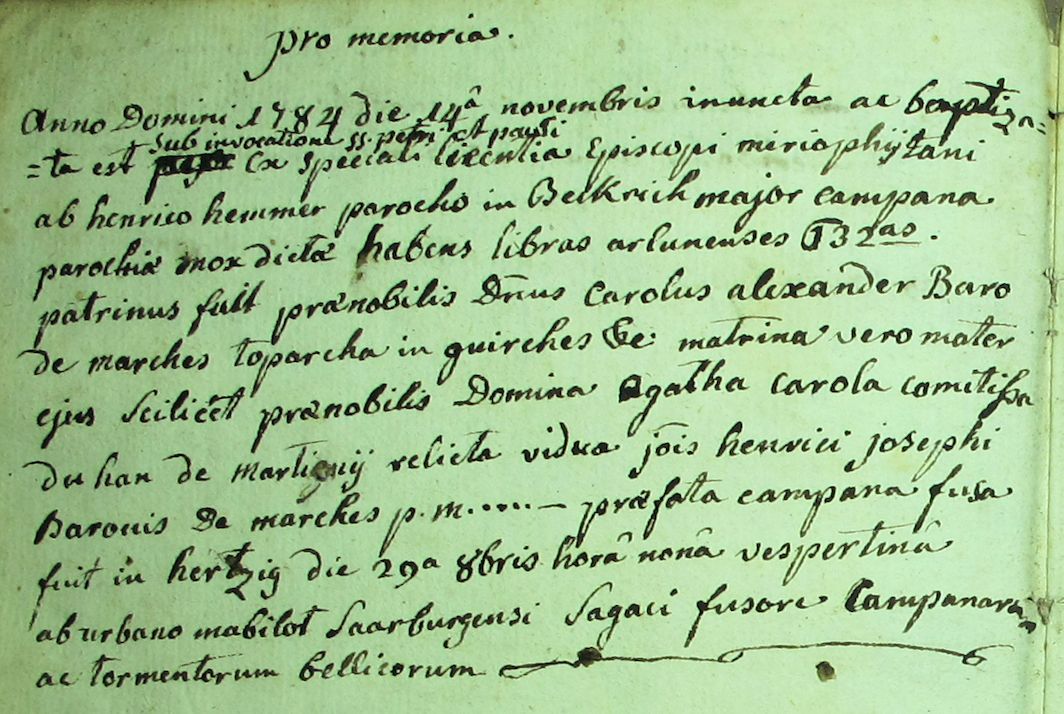 pro memoria.
Anno Domini 1784 die 14â novembris inuncta ac baptiza=
sub invocatione ss. petri et pauli
=ta est ex speciali licentia Episcopi miriophijtani
ab henrico hemmer parocho in Beckrich major campana
parochiæ mox dictæ habens libras arlunenses 132as.
patrinus fuit prænobilis Dn̄us Carolus alexander Baro
de marches toparcha in guirches &c. matrina vero mater
ejus scilicet prænobilis Domina agatha carola comitissa
du han de martignij relicta vidua jōis henrici josephi
Baronis de marches p. m. ..... — præfata campana fusa
fuit in hertzig die 29a 8bris horâ nonâ vespertinâ
ab urbano mabilot Saarburgensi sagaci fusore campanarum
ac tormentorum bellicorum